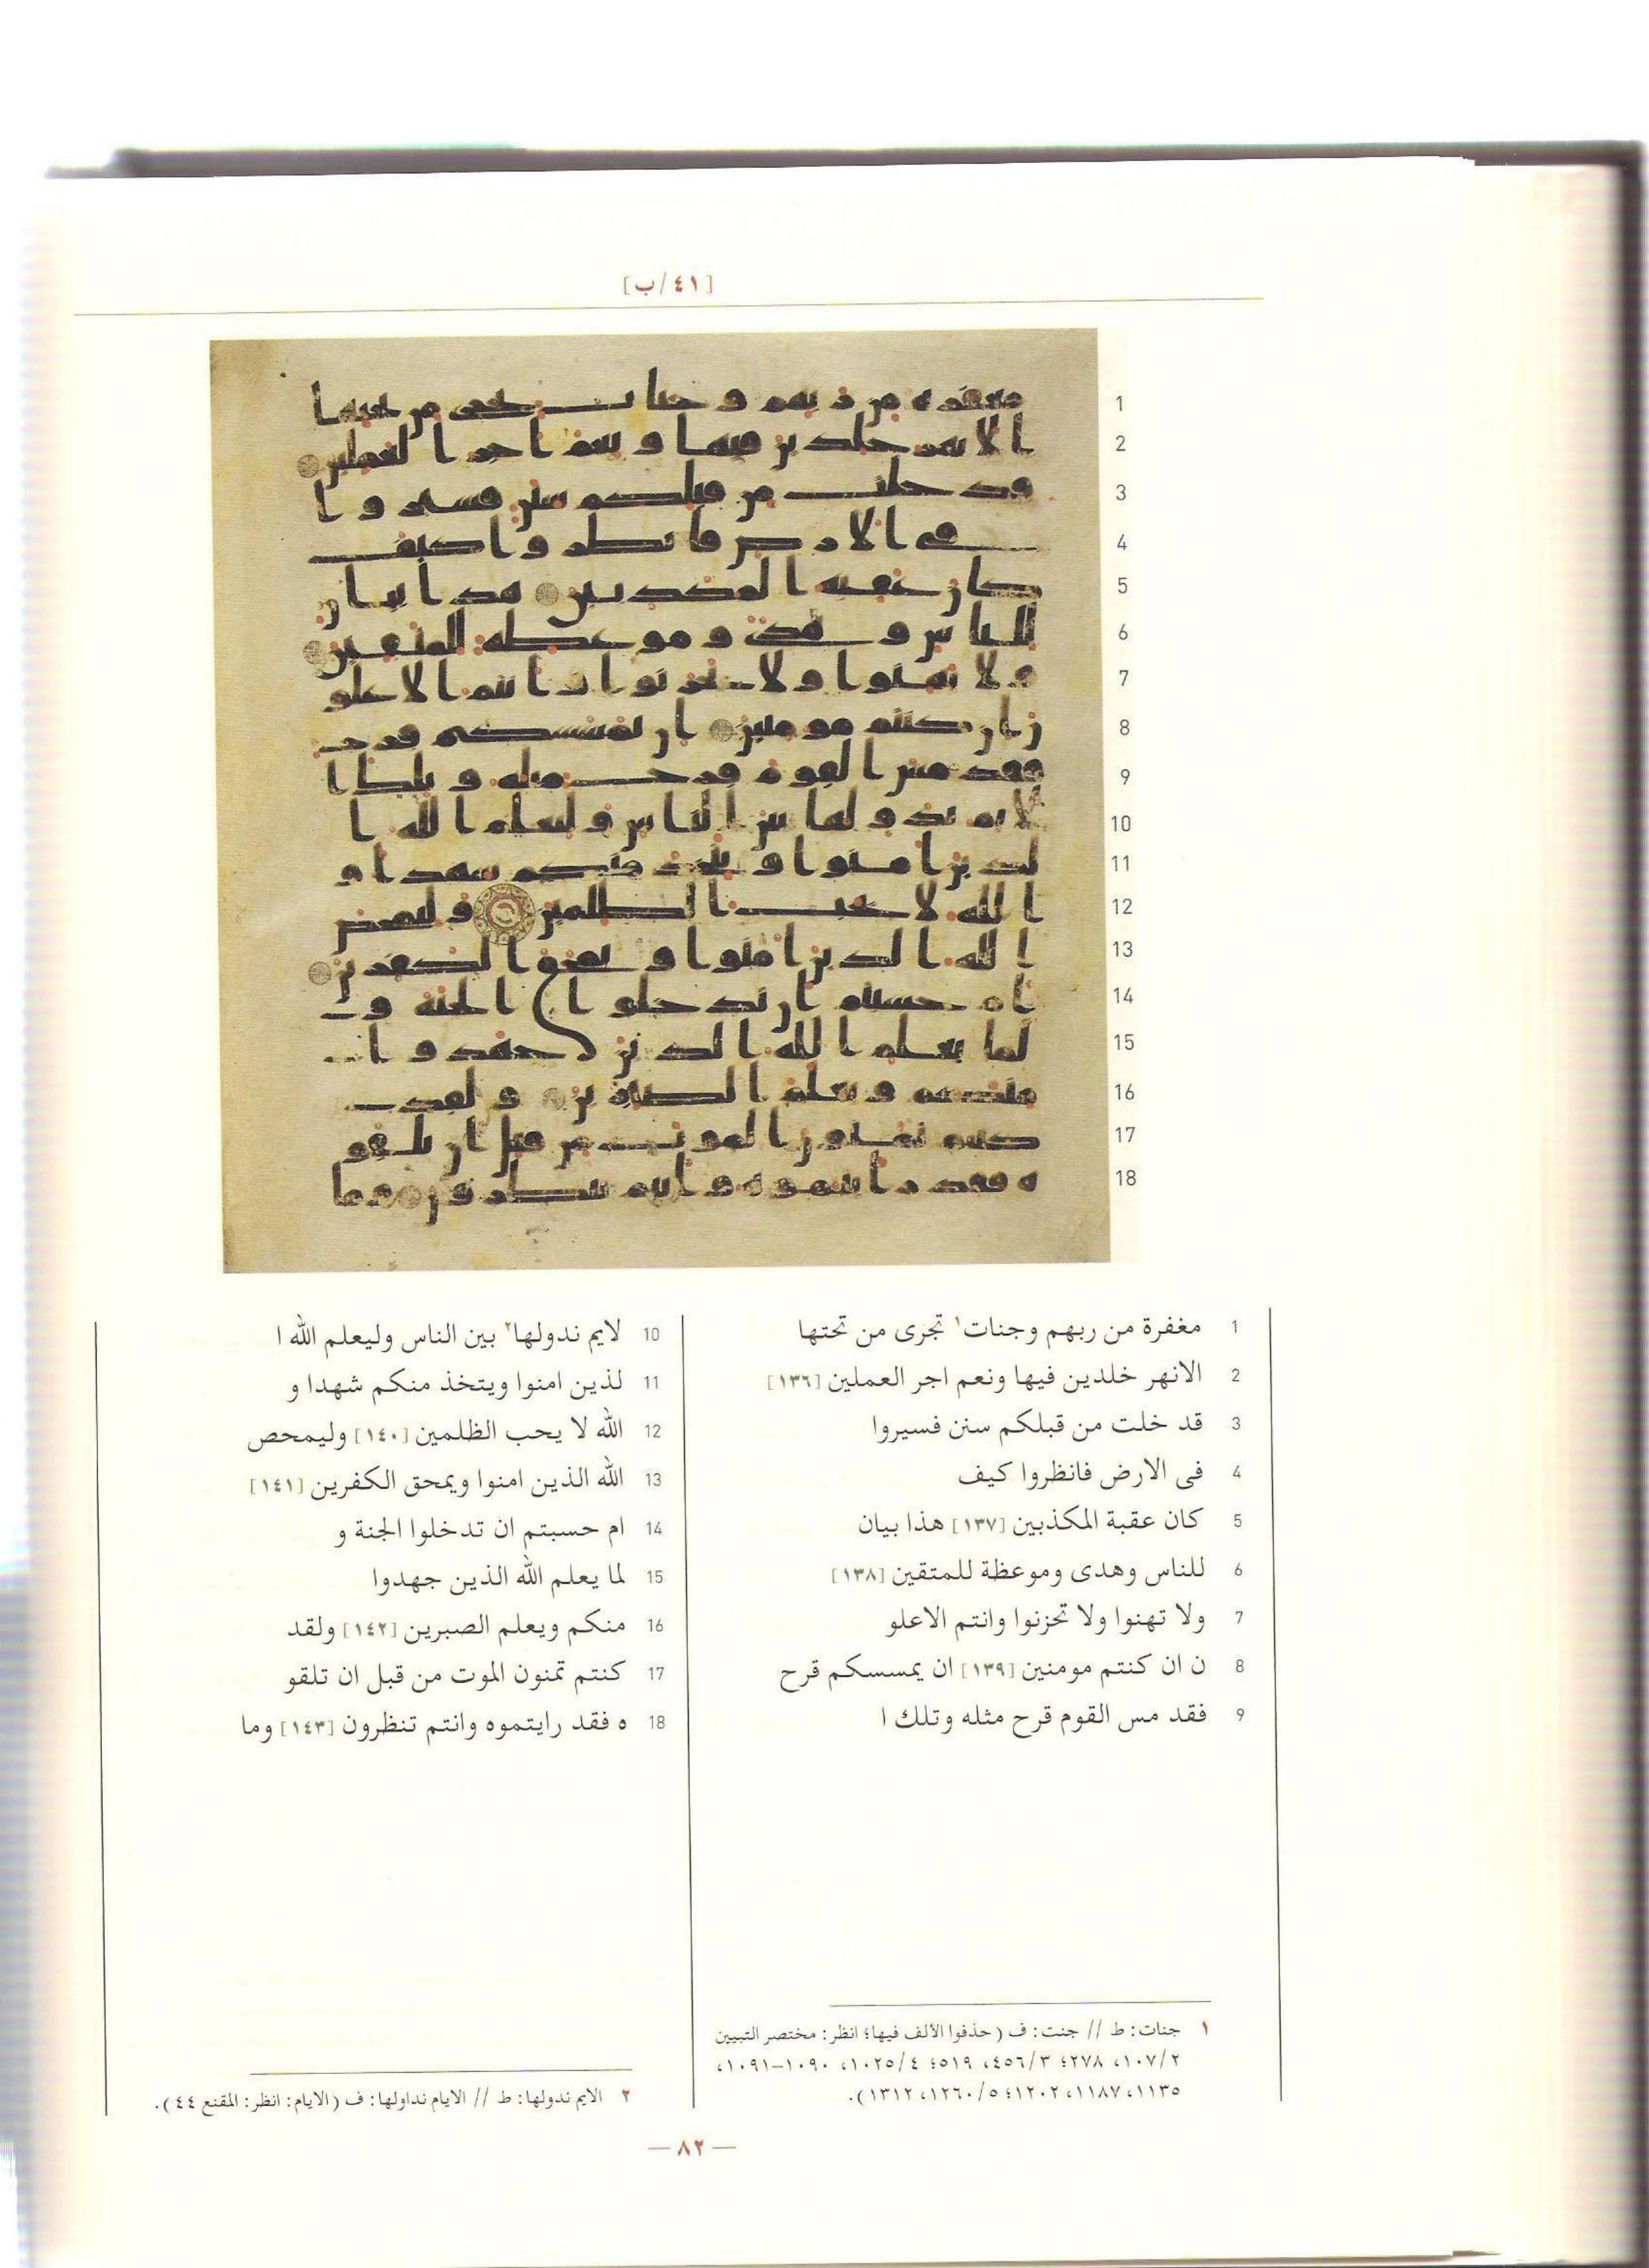 [٤١/ب]
1 مغفرة من ربهم وجنات١ تجرى من تحتها
2 الانهر خلدين فيها ونعم اجر العملين [١٣٦]
3 قد خلت من قبلكم سنن فسيروا
4 فى الارض فانظروا كيف
5 كان عقبة المكذبين [١٣٧] هذا بيان
6 للناس وهدى وموعظة للمتقين [١٣٨]
7 ولا تهنوا ولا تحزنوا وانتم الاعلو
8 ن ان كنتم مومنين [١٣٩] ان يمسسكم قرح
9 فقد مس القوم قرح مثله وتلك ا
10 لايم ندولها٢ بين الناس وليعلم الله ا
11 لذين امنوا ويتخذ منكم شهدا و
12 الله لا يحب الظلمين [١٤٠] وليمحص
13 الله الذين امنوا ويمحق الكفرين [١٤١]
14 ام حسبتم ان تدخلوا الجنة و
15 لما يعلم الله الذين جهدوا
16 منكم ويعلم الصبرين [١٤٢] ولقد
17 كنتم تمنون الموت من قبل ان تلقو
18 ه فقد رايتموه وانتم تنظرون [١٤٣] وما
١ جنات: ط // جنت: ف (حذفوا الألف فيها؛ انظر: مختصر التبيين
١٠٧/٢، ٢٧٨؛ ٤٥٦/٣، ٥١٩؛ ١٠٢٥/٤، ١٠٩٠-١٠٩١،
١١٣٥، ١١٨٧، ١٢٠٢؛ ١٢٦٠/٥، ١٣١٢).
٢ الايم ندولها: ط // الايام نداولها: ف (الايام: انظر: المقنع ٤٤).
— ٨٢ —